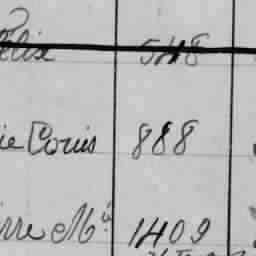 elix 548
ie Louis 888
rre Ma 1409